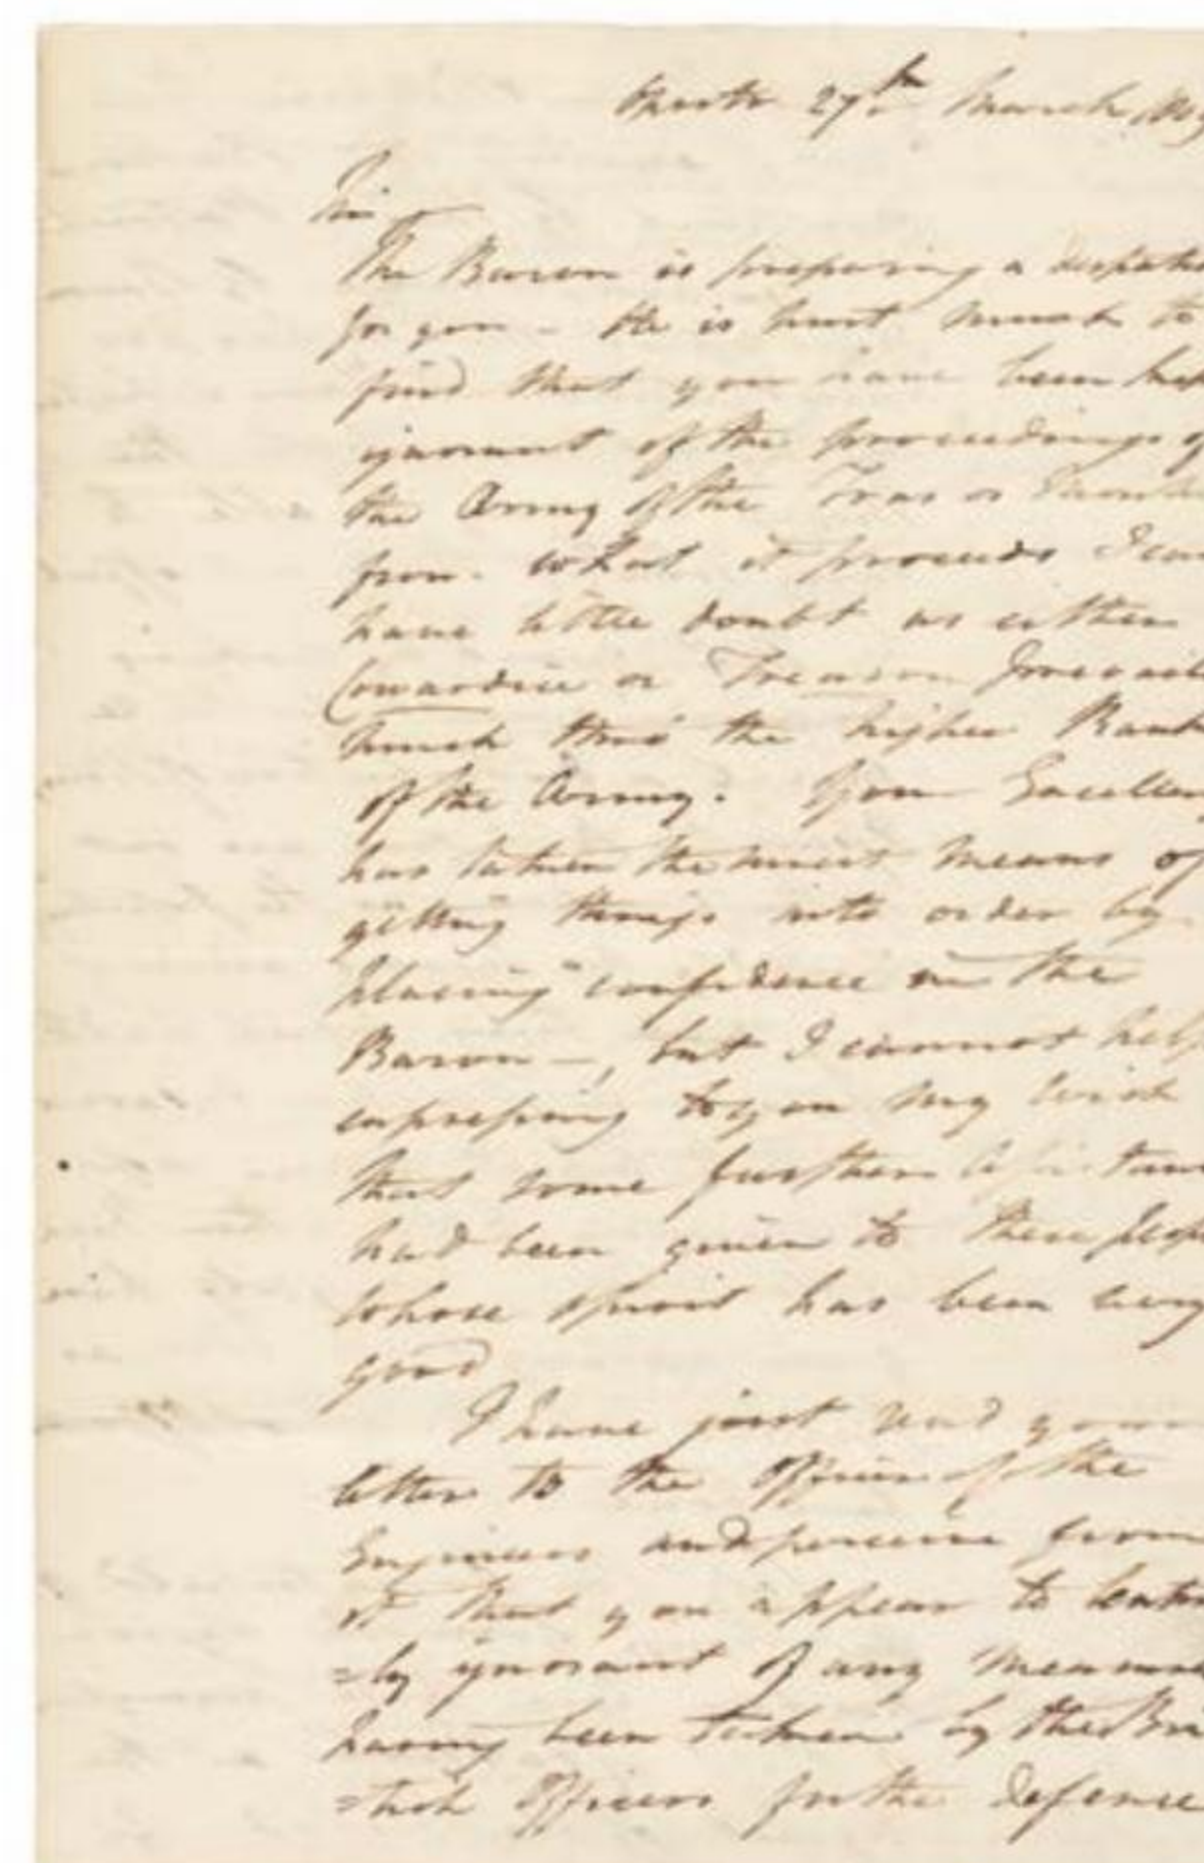 27th March
Sir
The Baron is preparing a dispatch
for you - He is hurt much to
find that you have been kept
ignorant of the proceedings of
the Army of the Tras os
from what it proceeds I can
have little doubt as either
Cowardice or Treason prevails
much thro' the higher Ranks
of the Army. Your Excellency
has taken the surest means of
getting things into order by
placing confidence in the
Baron -, but I cannot help
expressing to you my wish
that some further Assistance
had been given to these people
whose spirit has been very
good
I have just read your
letter to the Officer of the
Engineers and perceive from
it that you appear to be
=ly ignorant of any measures
having been taken by the Bri
=tish Officers for the defence